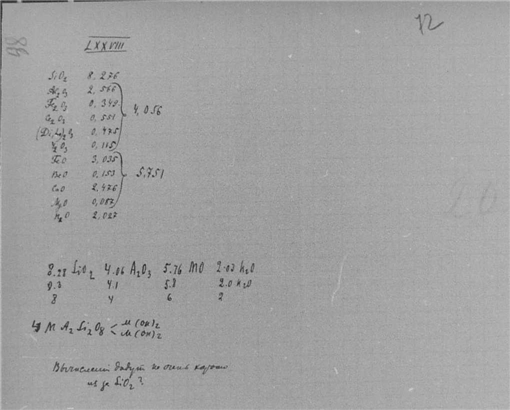 12
LXXVIII
SiO2 8,276
Al2O3 2,566
Fe2O3 0,340
Ce2O3 0,551
4,056
(Di,La)2O3 0,475
Y2O3 0,115
FeO 3,035
BeO 0,153
5,751
CaO 2,476
MgO 0,087
H2O 2,027
8.28 SiO2 4.06 A2O3 5.76 MO 2.03 H2O
8.3 4.1 5.8 2.0 H2O
8 4 6 2
4 M A2 Si2O8 < M(OH)2
M(OH)2
Вычисления дадут не очень хорошо
из за SiO2?
20